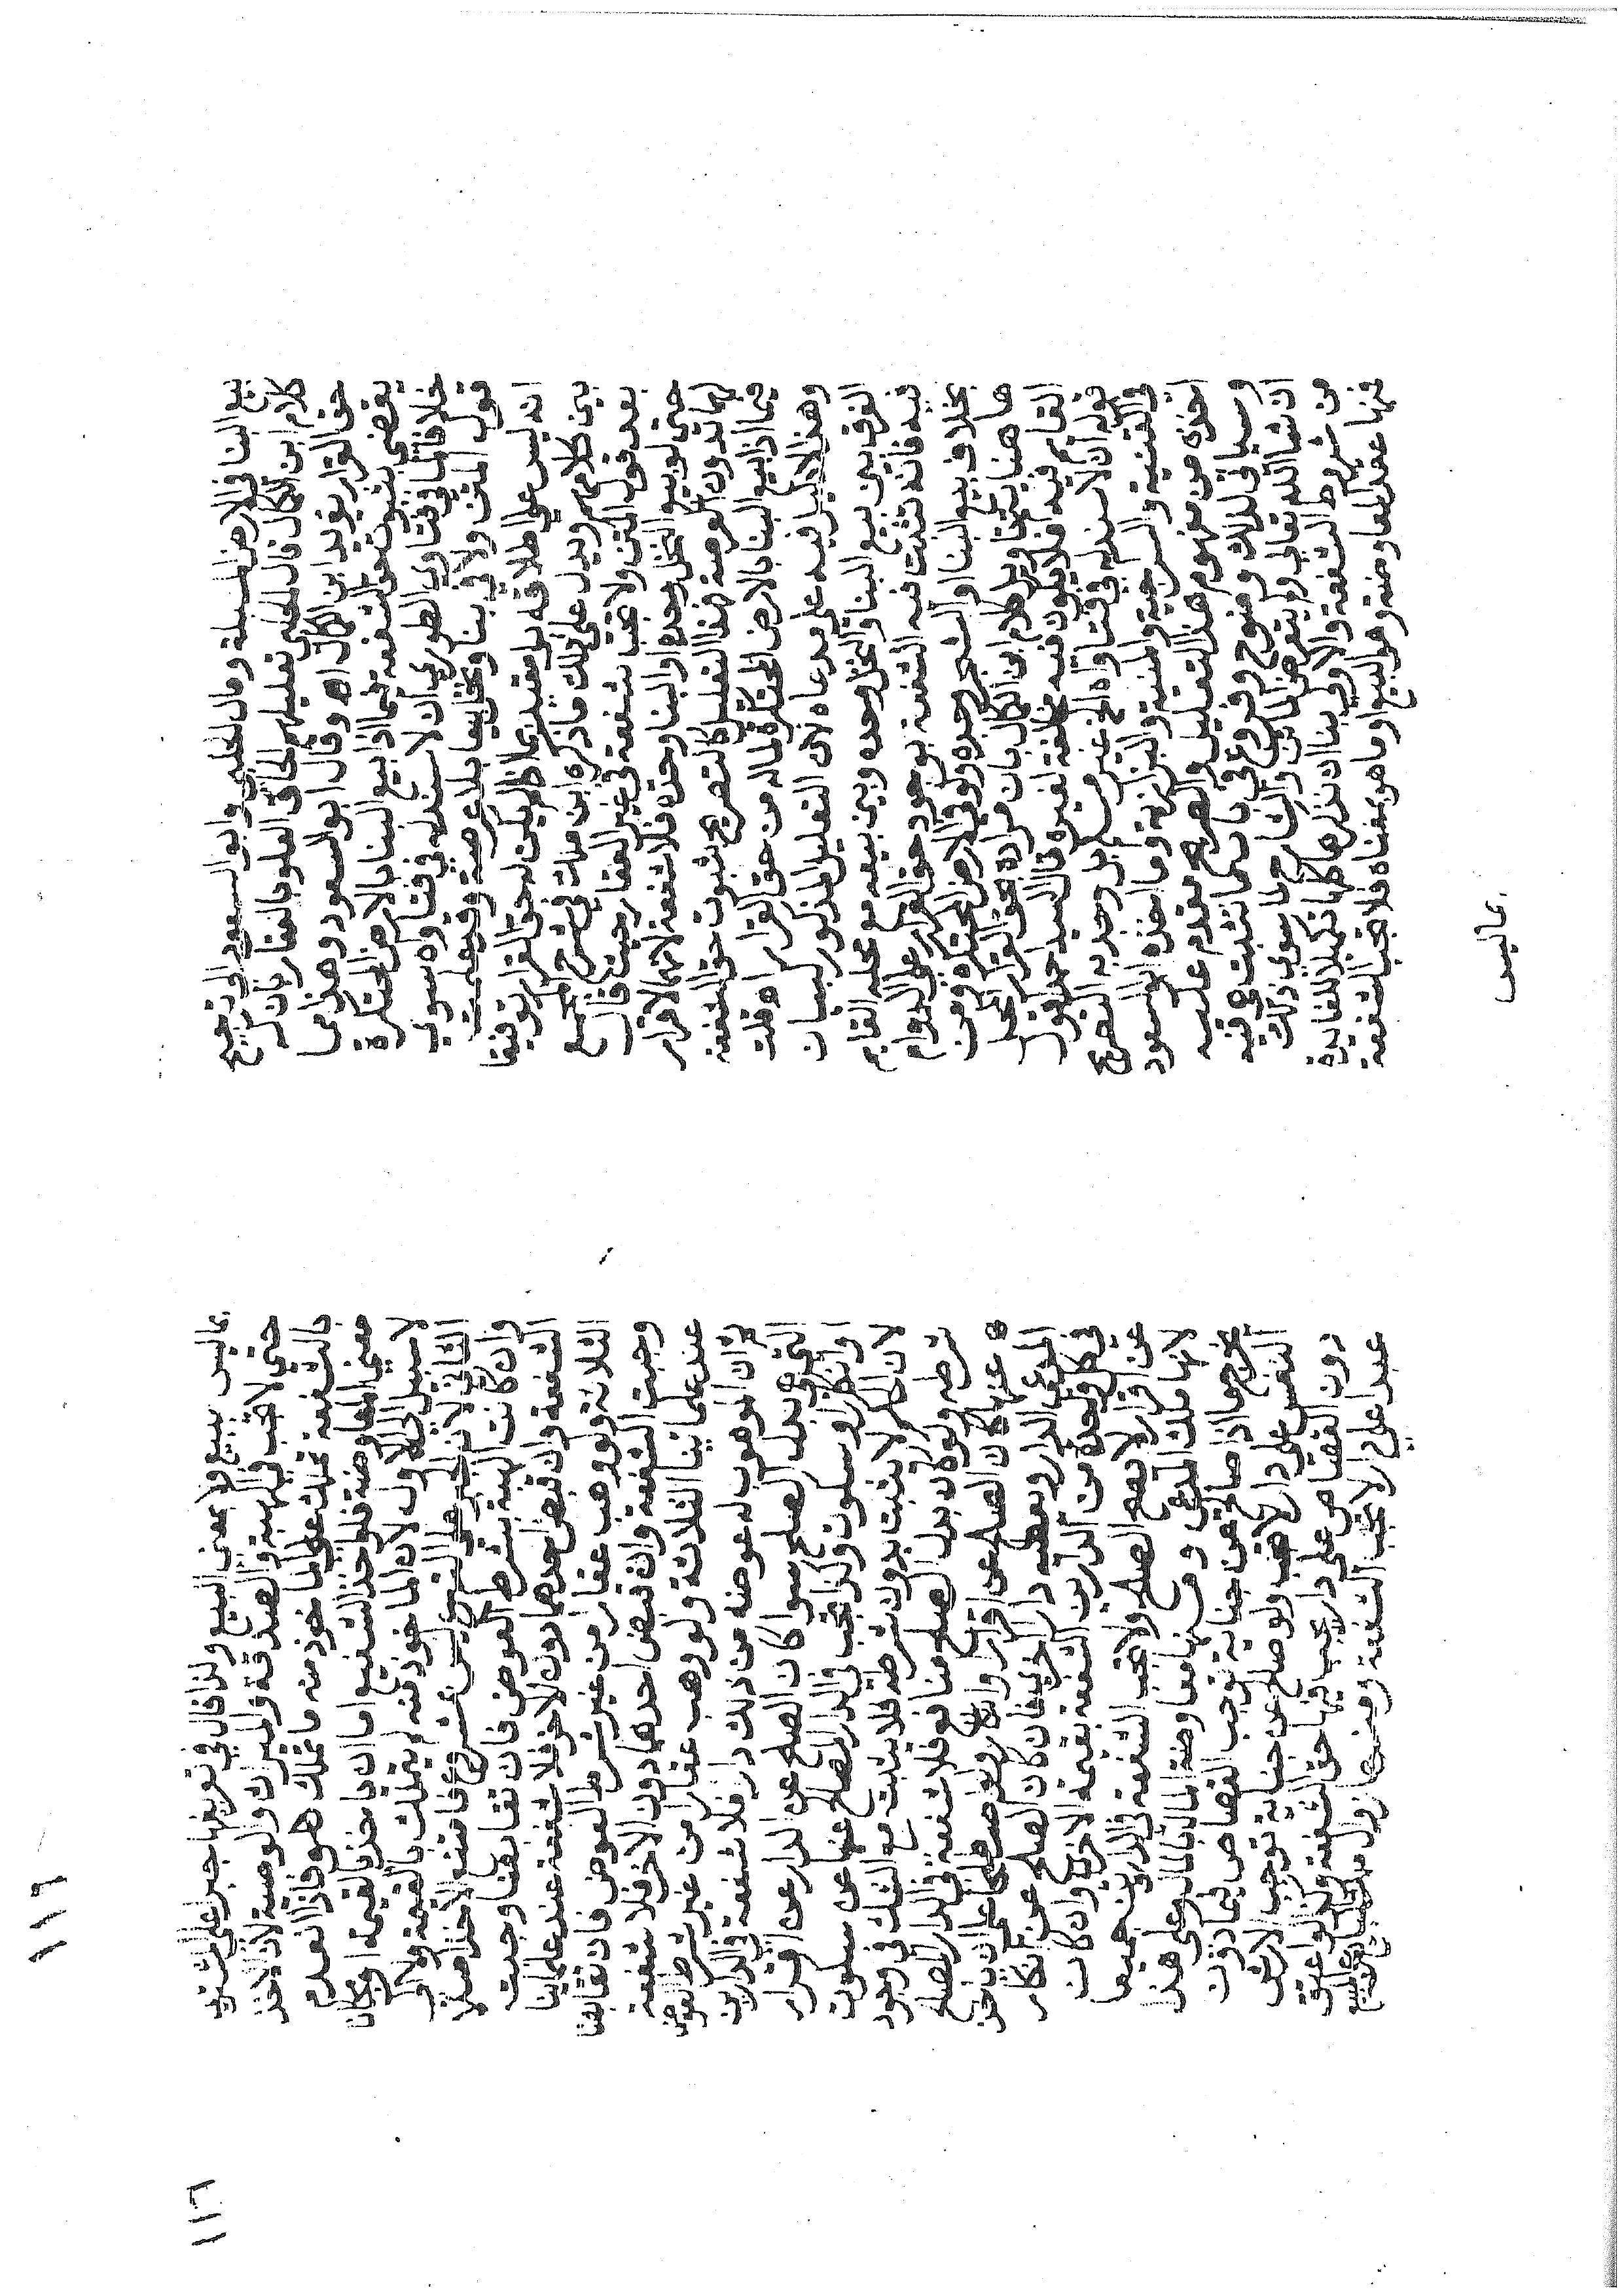 بيع البنا في الارض المسبلة ومال الحلبي وابو السعود الي ترجيح
كلام ابن الكمال قال الحلبي تعليلهم الحاق العلو بالعقار بان له
حق القرار يؤيد ابن الكمال اه وقال ابو السعود وهذا كما
يقتضي بثبوت حق الشفعة فيما اذا بيع البنا بالارض المحتكرة
خلافا لما في فتاوي الطوري ان لا سند له في فتاواه سوي
قول المتن ولا في بنا ونخل بيعا بلا عرصة وقد علمت
انه ليس علي اطلاقه بل مقيد بما اذا لم يكن له حق القرار توفيقا
بين كلامهم ويدل علي ذلك ما ذكره ابن ملك في شرح المجمع
بعد قول المتن ولا تجب شفعة في غير العقار حيث قال
حتي لو بيع النخل وحده او البنا وحده فلا شفعة لانهما لا قرار
لهما بدون العرصة فهذا التعليل كالتصريح بثبوت حق الشفعة
فيما اذا بيع البنا بالارض المحتكرة لما له من حق القرار اه قلت
وهذا لا دليل فيه علي مدعاه لان التعليل المذكور لبيان
الفرق بين بيع البنا والنخل وحده وبين بيعه مع محله القايم
فيه فانه تثبت فيه الشفعة بوجود حق القرار علي الدوام
بخلاف بيع البنا والشجر وحده ولو في الارض المحتكره ومن
ها هنا يتجه تاويل كلام ابن الكمال بان مراده حق القرار لمحل
القايم فيه فلا يكون فيه مخالفة لغيره قال السيد احمد وقول
قوله ان لا سند له في فتاواه الخ غير مسلم بل وجد به التصريح
في القنية والسرجية والمنية والبزازية وما اخذه ابو السعود
اخذه من مفهوم هذا التعليل والصريح مقدم عليه
وسياتي لذلك وضوح وفروع في باب ما تثبت هي فيه
ان شا الله تعالي ولم يتعرض الماتن والشارح لما سوي ذلك
من شروط الشفعة والاولي بنا ان نذكرها كلها تكميلا للفايدة
فمنها عقد المعاوضة وهو البيع او ما هو بمعناه فلا تجب الشفعة
بماليس
١١٩
١١٦
بماليس ببيع ولا بمعني البيع ولذا قال في تعريفها جبرا علي المشتري
حتي لا تجب في الهبة والصدقة والميراث والوصية لان الاخذ
بالشفعة تملك علي الماخوذ منه ما تملك هو فاذا انعدم
معني المعاوضة فلو اخذ الشفيع اما ان ياخذ بالقيمة او مجانا
لا سبيل الي الاول لان الماخوذ منه لم يتملك بالقيمة ولا الي
الثاني لان الجبر علي التبرع ليس بمشروع فامتنع الاخذ اصلا
وان كانت الهبة بشرط العوض فان تقابضا وجبت
الشفعة وان قبض احدهما دون الاخر فلا شفعة عند علماينا
الثلاثة ولو وهب عقارا من غير شرط العوض فان تقابضا
وجبت الشفعة وان قبض احدهما دون الاخر فلا شفعة
عند علماينا الثلاثة ولو وهب عقارا من غير شرط العوض
ثم ان الموهوب له عوضه من ذلك دار فلا شفعة في الدارين
التي هي بدل الصلح سوا كان الصلح عن الدار عن اقرار
او انكار او سكوت ولذا تجب في الدار المصالح عنها عن سكوت
لان الحكم لا يثبت بدون شرطه فلا يثبت مع الشك في وجود
شرطه ولو كان بدل الصلح منافع فلا شفعة في الدار المصالح
عنها كان الصلح عن اقرار او انكار ولو اصطلحا علي ان ياخذ
المدعي الدار ويعطيه دارا اخري فان كان الصلح عن انكار
في كل واحدة من الدارين الشفعة بقيمة الاخري وان كان
عن اقرار لا يصح الصلح ولا تجب الشفعة في الدارين جميعا
لانها ملك المدعي ومنها معاوضة المال بالمال وعلي هذا
يخرج ما اذا صالح عن جناية توجب القصاص فيما دون
النفس علي دار لا تجب ولو صالح عن جناية توجب الارش
دون القصاص علي دار يجب فيها حق الشفعة وكذا لو اعتق
عبدا علي دار لا تجب الشفعة ومنها زوال ملك البايع عن المبيع